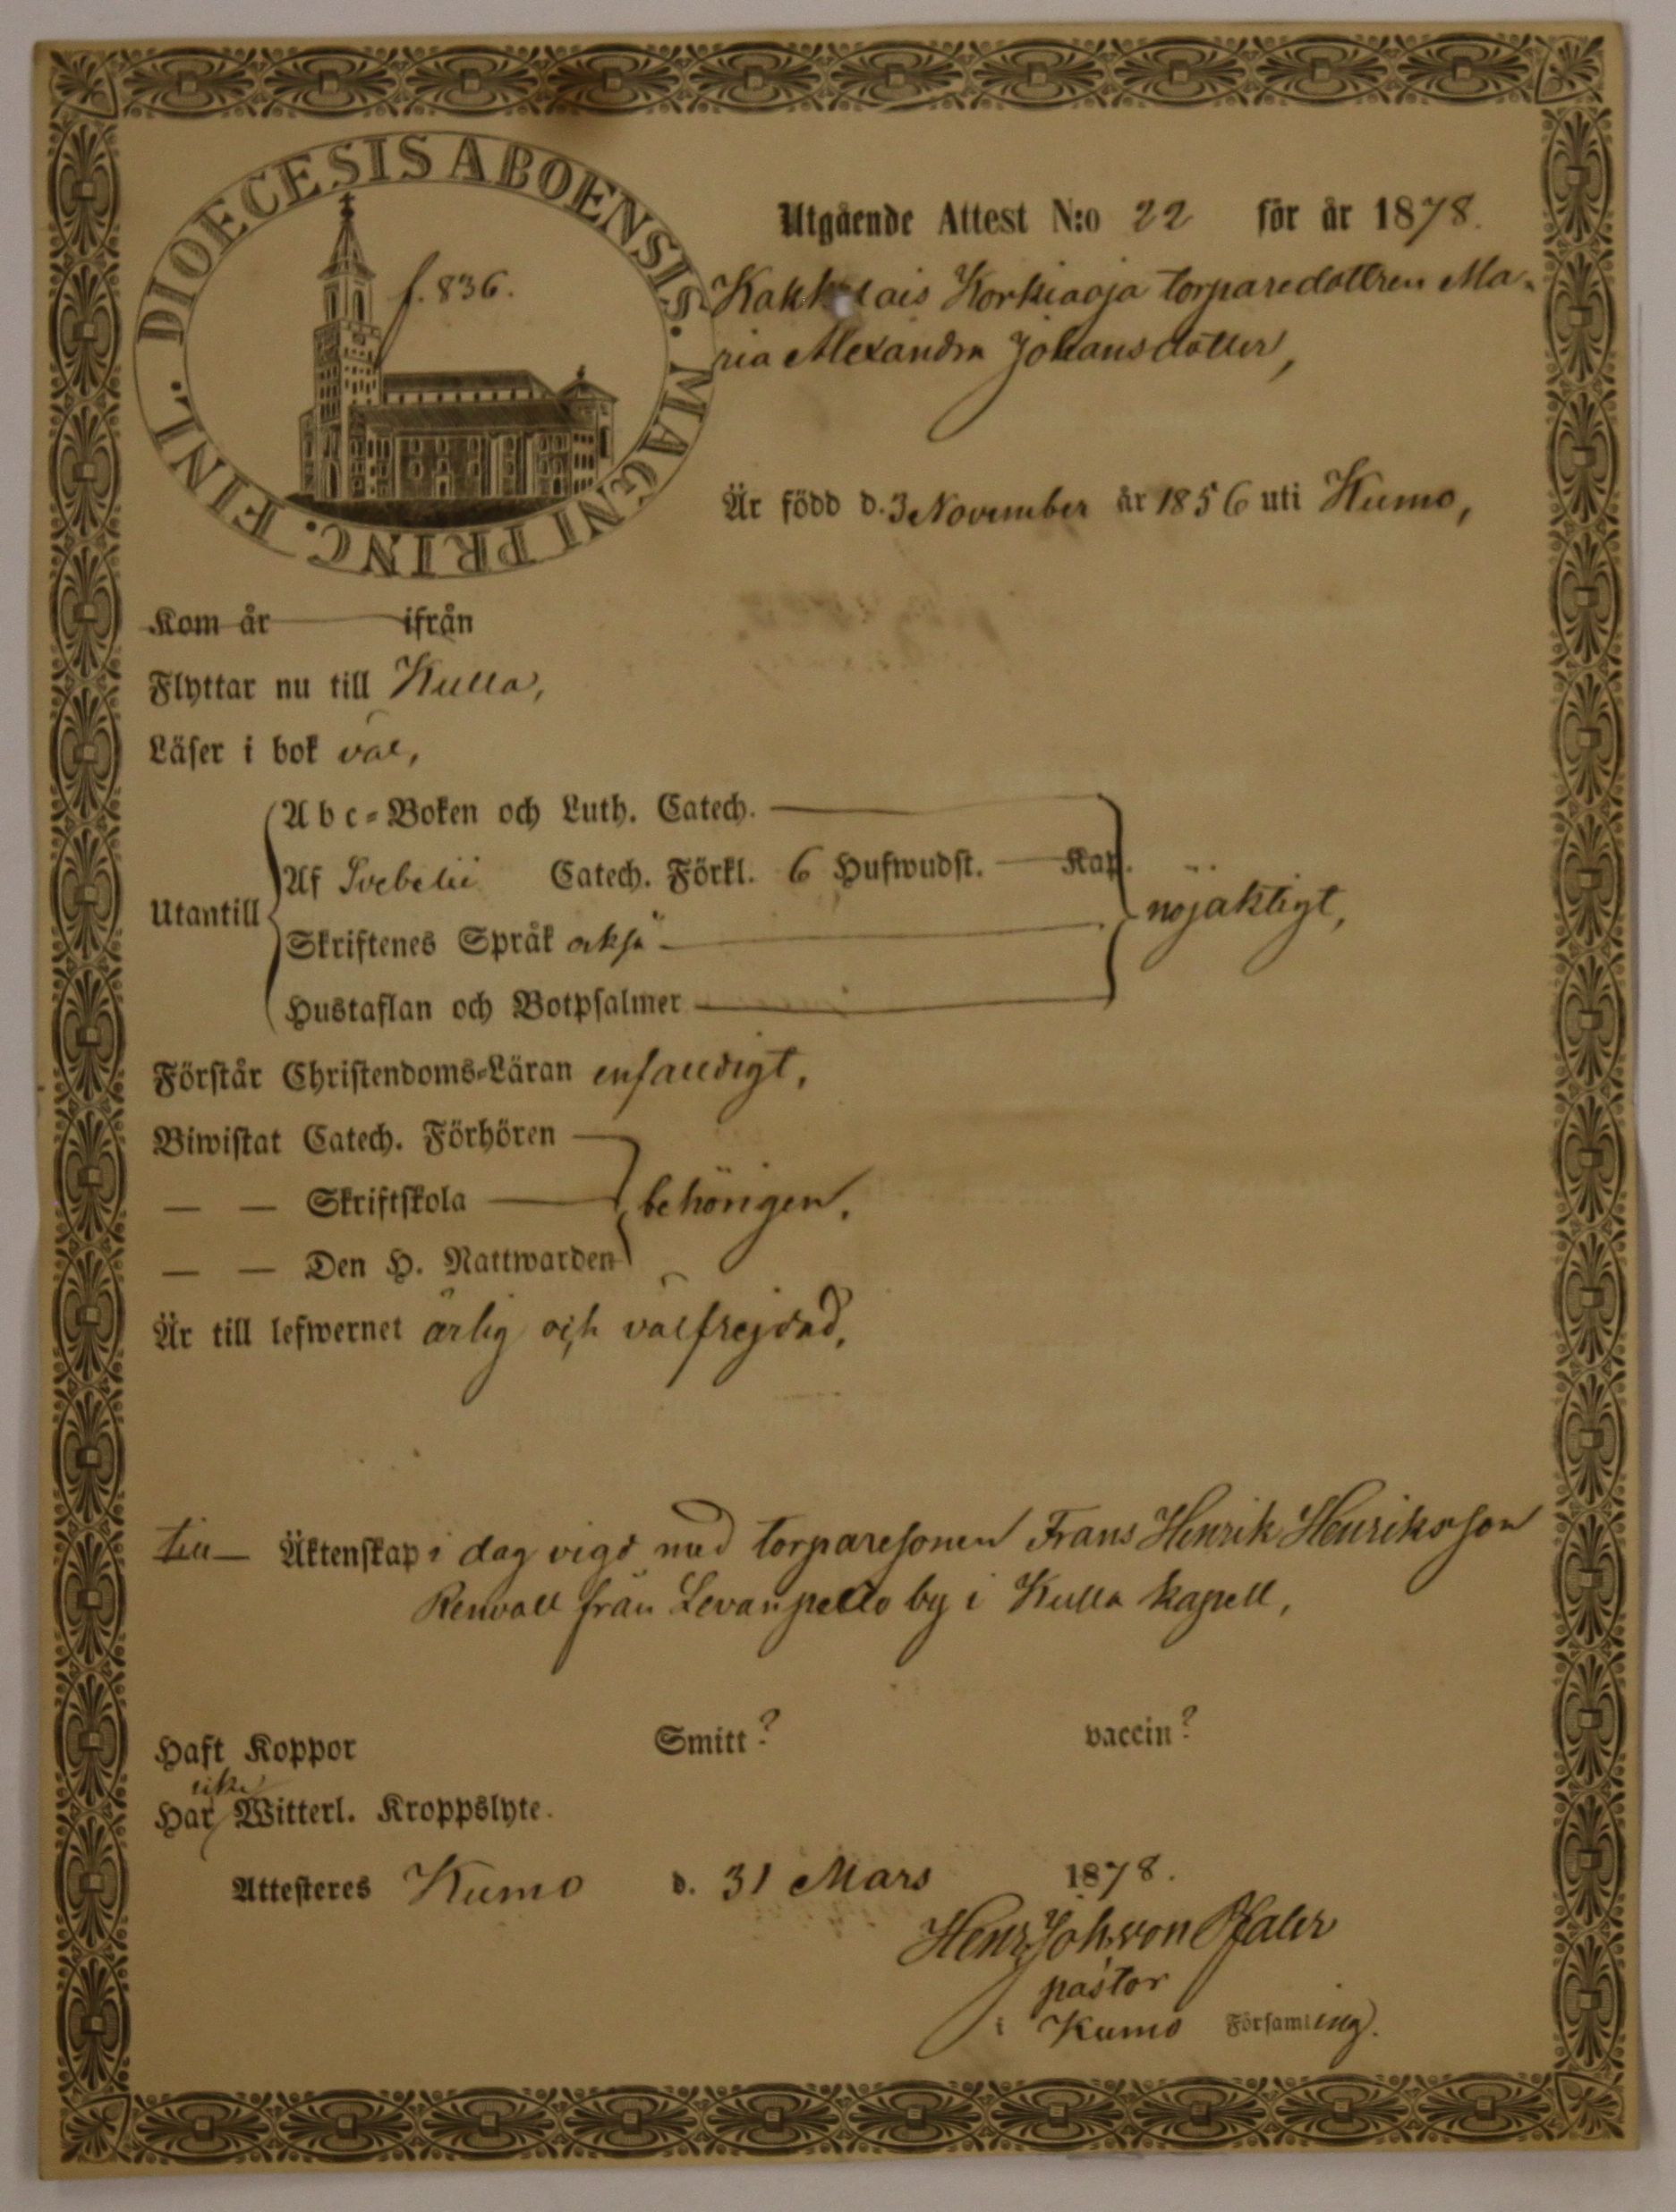 DIOECESIS ABOENSIS. MAGNI PRINC. FINL.
f. 836.
Utgående Attest N:o 22 för år 1878.
Korkiaoja torparedottren Ma-
ria Alexandra Johansdotter,
Är född d. 3 November år 1856 uti Kumo,
Kom år ifrån
Flyttar nu till Kulla,
Läser i bok väl,
Abc-Boken och Luth. Catech.
Af Svebelii Catech. Förkl. 6 Hufwudst. Kap.
Utantill nöjaktigt,
Skriftenes Språk också
Hustaflan och Botpsalmer
Förstår Christendoms-Läran enfaldigt,
Biwistat Catech. Förhören
— — Skriftskola behörigen,
— — Den H. Nattwarden
Är till lefwernet ärlig och välfrejdad,
till Äktenskap i dag vigd med torparesonen Frans Henrik Henriksson
Renvall från Levanpelto by i Kulla kapell,
Haft Koppor Smitt? vaccin?
icke
Har Witterl. Kroppslyte.
Attesteres Kumo d. 31 Mars 1878.
Henr. Joh. von Pfaler
pastor
i Kumo Församling.